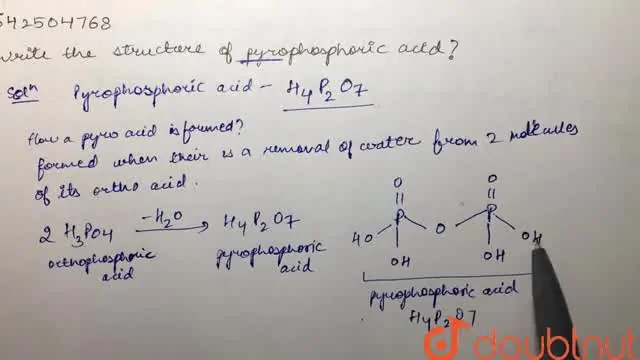 542504768
write the structure of pyrophosphoric acid?
Soln Pyrophosphoric acid - H4P2O7
How a pyro acid is formed?
formed when their is a removal of water from 2 molecules
of its ortho acid.
2 H3PO4 -H2O → H4P2O7
orthophosphoric acid
pyrophosphoric acid
O O
|| ||
HO P O P OH
OH OH
pyrophosphoric acid
H4P2O7
doubtnut